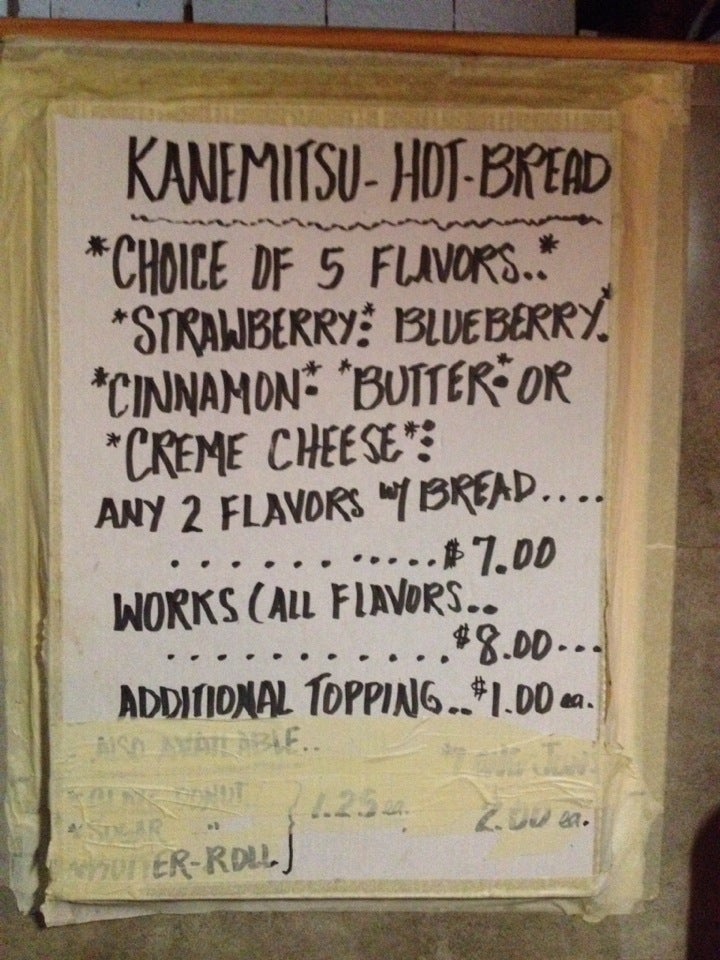 KANEMITSU- HOT-BREAD
*CHOICE OF 5 FLAVORS..*
*STRAWBERRY*: BLUEBERRY*.
*CINNAMON*: *BUTTER*: OR
*CREME CHEESE*:
ANY 2 FLAVORS w/ BREAD....
............$7.00
WORKS (ALL FLAVORS..
............$8.00...
ADDITIONAL TOPPING..$1.00 ea.
ALSO AVAILABLE..
1.25 ea. 2.00 ea.
*SUGAR "
ER-ROLL